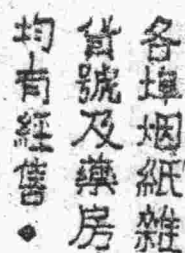 各埠烟紙雜
貨號及藥房
均有經售◆